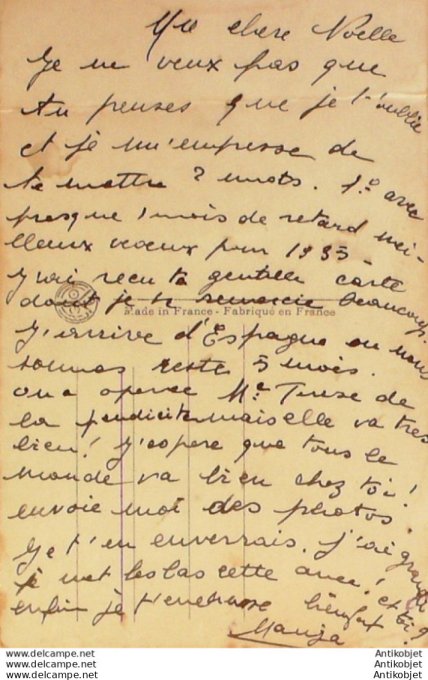 Ma chere Noelle
Je ne veux pas que
tu penses que je t'oublie
et je m'empresse de
te mettre 2 mots. 1º avec
presque 1 mois de retard mei-
lleurs voeux pour 1935
J'ai recu ta gentille carte
dont je te remercie beaucoup.
Made in France - Fabriqué en France
J'arrive d'Espagne ou nous
sommes reste 5 mois.
on a opere de
la pendicite mais elle va tres
bien! J'espere que tous le
monde va bien chez toi!
envoie moi des photos.
Je t'en enverrais. j'ai grandie
je met les bas cette annee! et toi?
enfin je t'embrasse bien fort
Antikobjet www.delcampe.net
Antikobjet www.delcampe.net